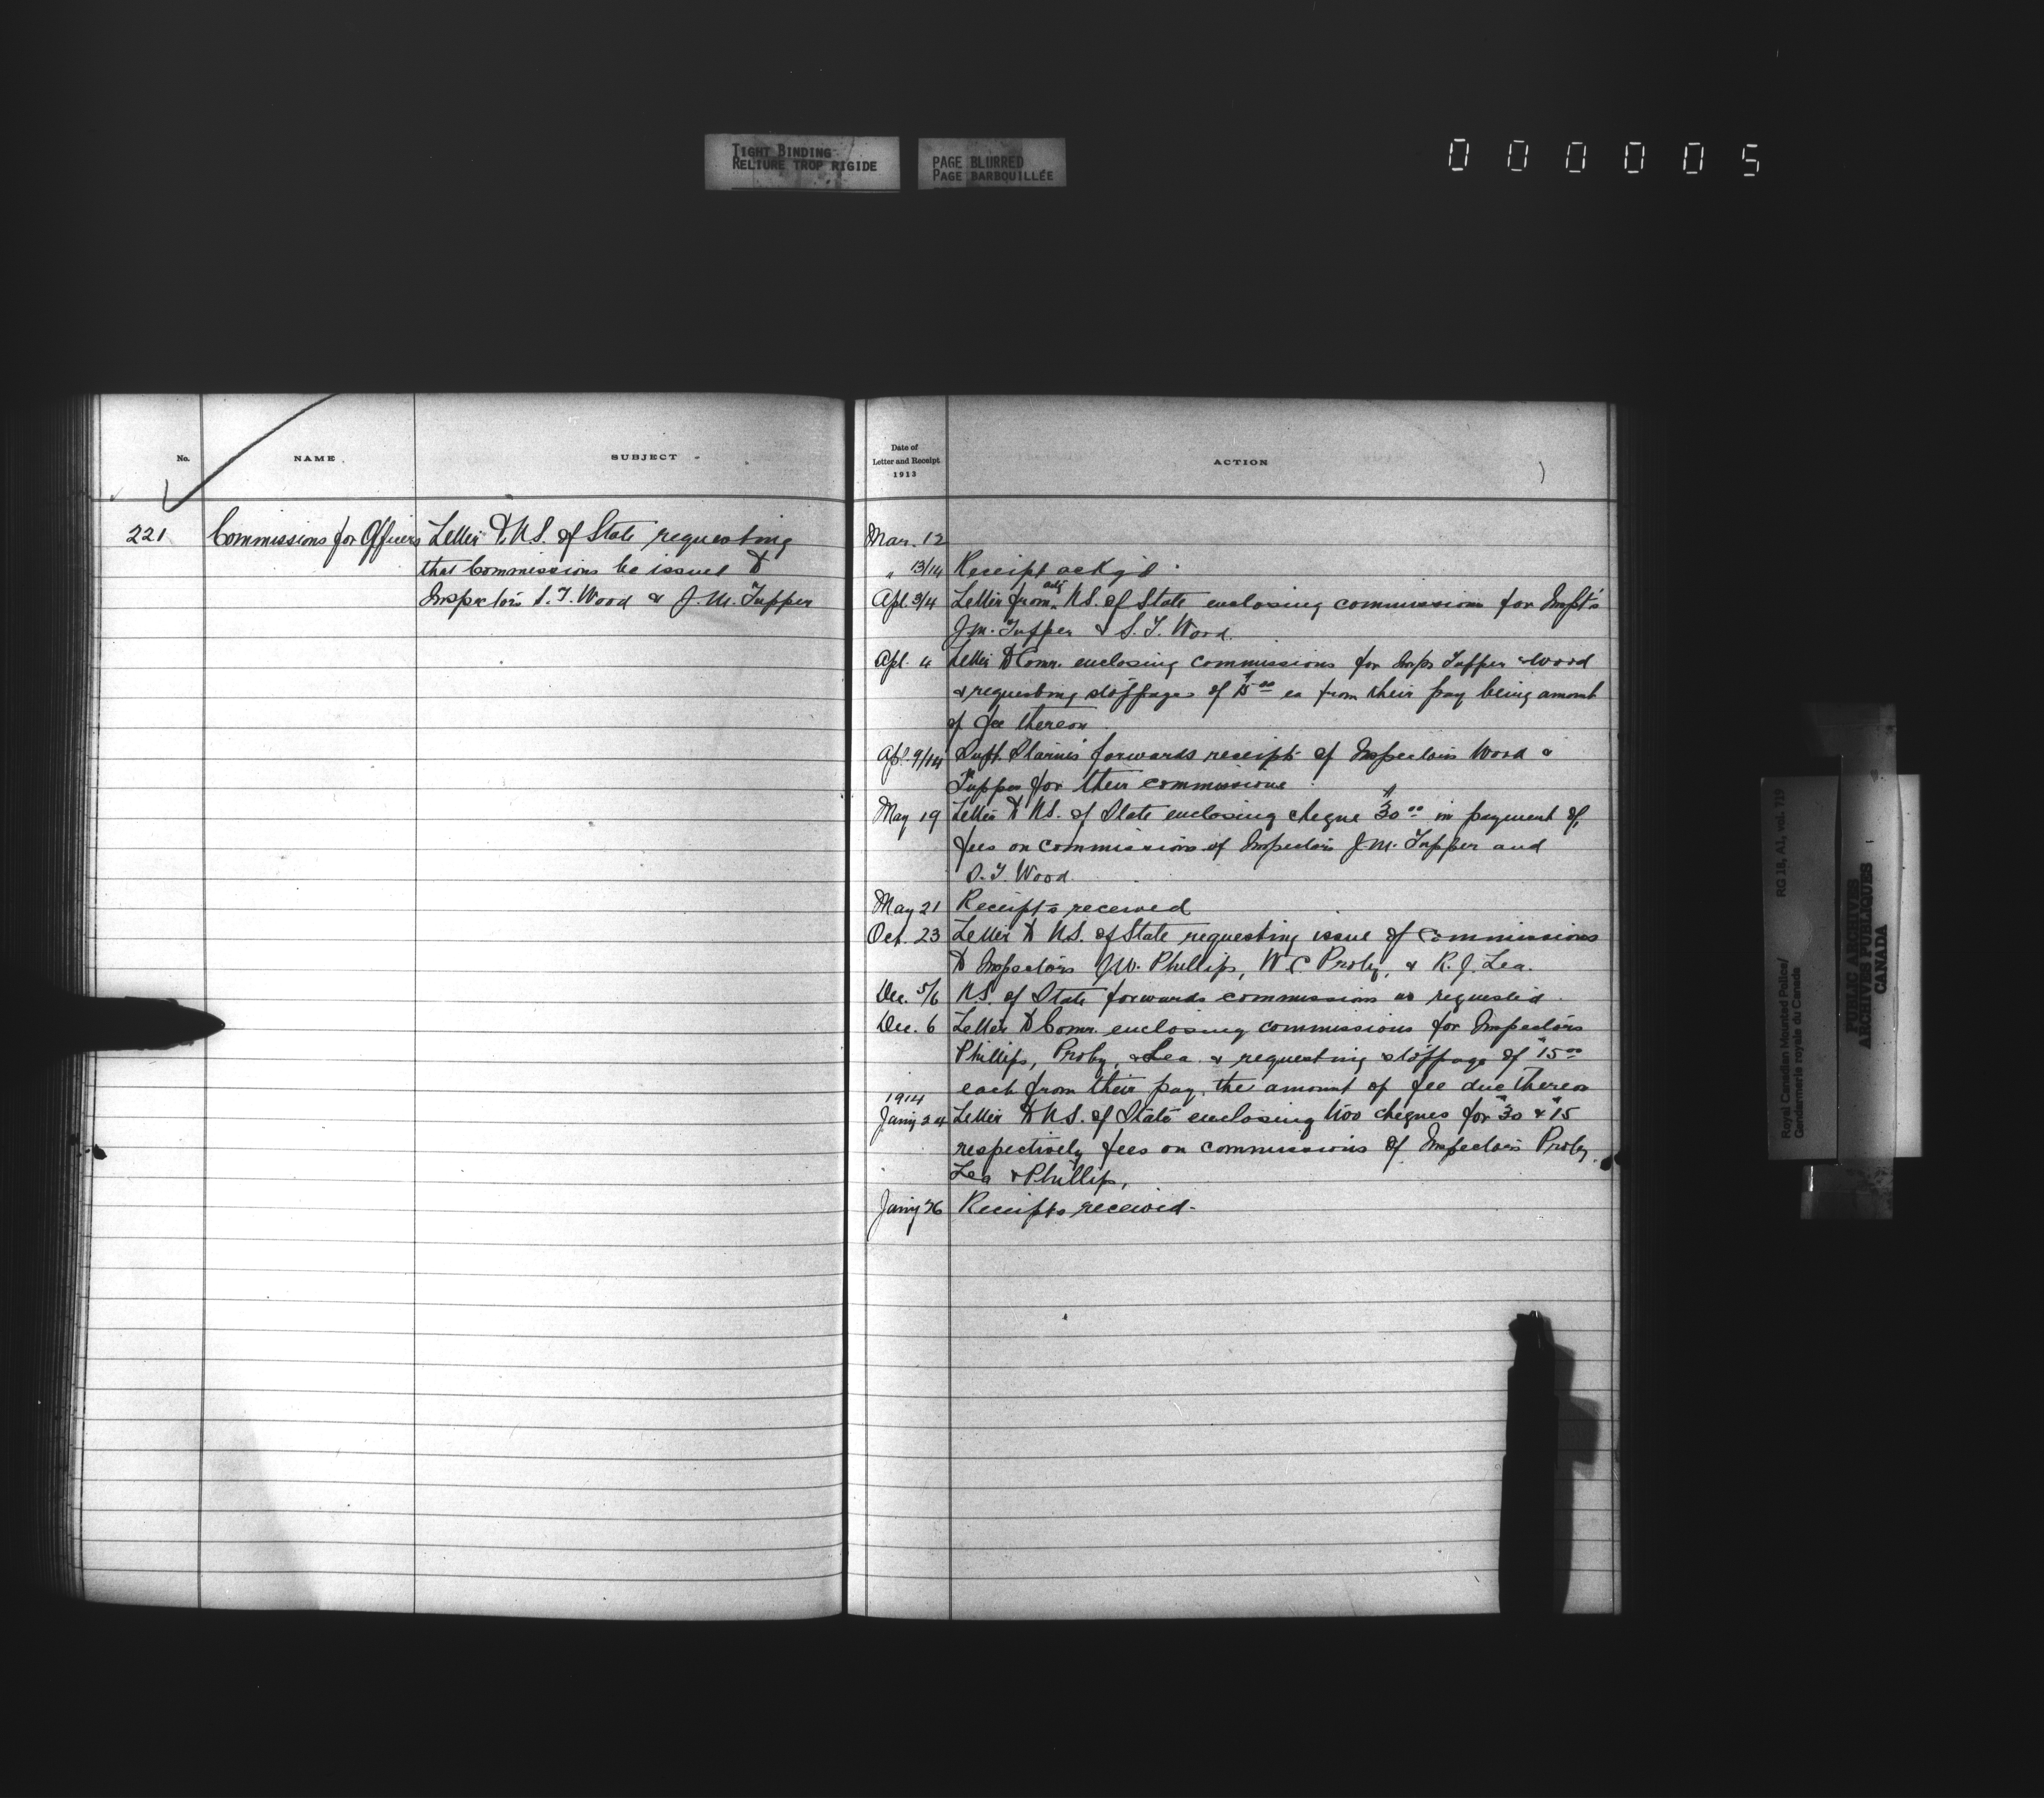 TIGHT BINDING
RELIURE TROP RIGIDE
PAGE BLURRED
PAGE BARBOUILLÉE
000005
No.
NAME
SUBJECT
221
Commissions for Officers
Letter to U.S. of State requesting
that Commissions be issued to
Inspectors S. T. Wood & J. M. Tupper
Date of
Letter and Receipt
1913
ACTION
Mar. 12
" 13/14 Receipt ackg'd
Apl. 3/4 Letter from U.S. of State enclosing commissions for Inspt's
J.M. Tupper & S. T. Wood.
Apl. 4 Letter to Comr. enclosing commissions for Insps Tupper & Wood
& requesting stoppages of $15 00 ea from their pay being amount
of fee thereon
Apl. 9/14 Supt. Starnes forwards receipt of Inspectors Wood &
Tupper for their commissions
May 19 Letter to U.S. of State enclosing cheque $30 00 in payment of
fees on commissions of Inspectors J.M. Tupper and
S. T. Wood.
May 21 Receipts received
Oct. 23 Letter to U.S. of State requesting issue of commissions
to Inspectors J.W. Phillips, W.C. Proby, & R. J. Lea.
Dec. 5/6 U.S. of State forwards commissions as requested.
Dec. 6 Letter to Comr. enclosing commissions for Inspectors
Phillips, Proby, & Lea & requesting stoppage of $15 00
each from their pay, the amount of fee due thereon
1914
Jany 24 Letter to U.S. of State enclosing two cheques for $30 & $15
respectively fees on commissions of Inspectors Proby,
Lea & Phillips,
Jany 26 Receipts received.
Royal Canadian Mounted Police/
Gendarmerie royale du Canada
RG 18, A1, vol. 719
PUBLIC ARCHIVES
ARCHIVES PUBLIQUES
CANADA